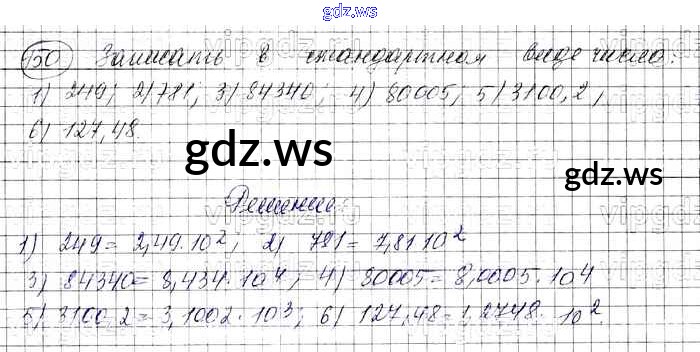 gdz.ws
150) Записать в стандартном виде число:
1) 249; 2) 781; 3) 84340; 4) 80005; 5) 3100,2;
6) 127,48.
gdz.ws
gdz.ws
Решение:
1) 249 = 2,49·10²; 2) 781 = 7,81 10²
3) 84340 = 8,434·10⁴; 4) 80005 = 8,0005·10⁴
5) 3100,2 = 3,1002·10³; 6) 127,48 = 1,2748·10².
gdz.ws